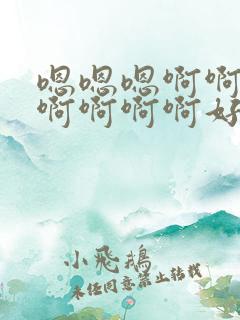 嗯嗯嗯啊啊
啊啊啊啊好
小飛鵝
未经同意禁止转载